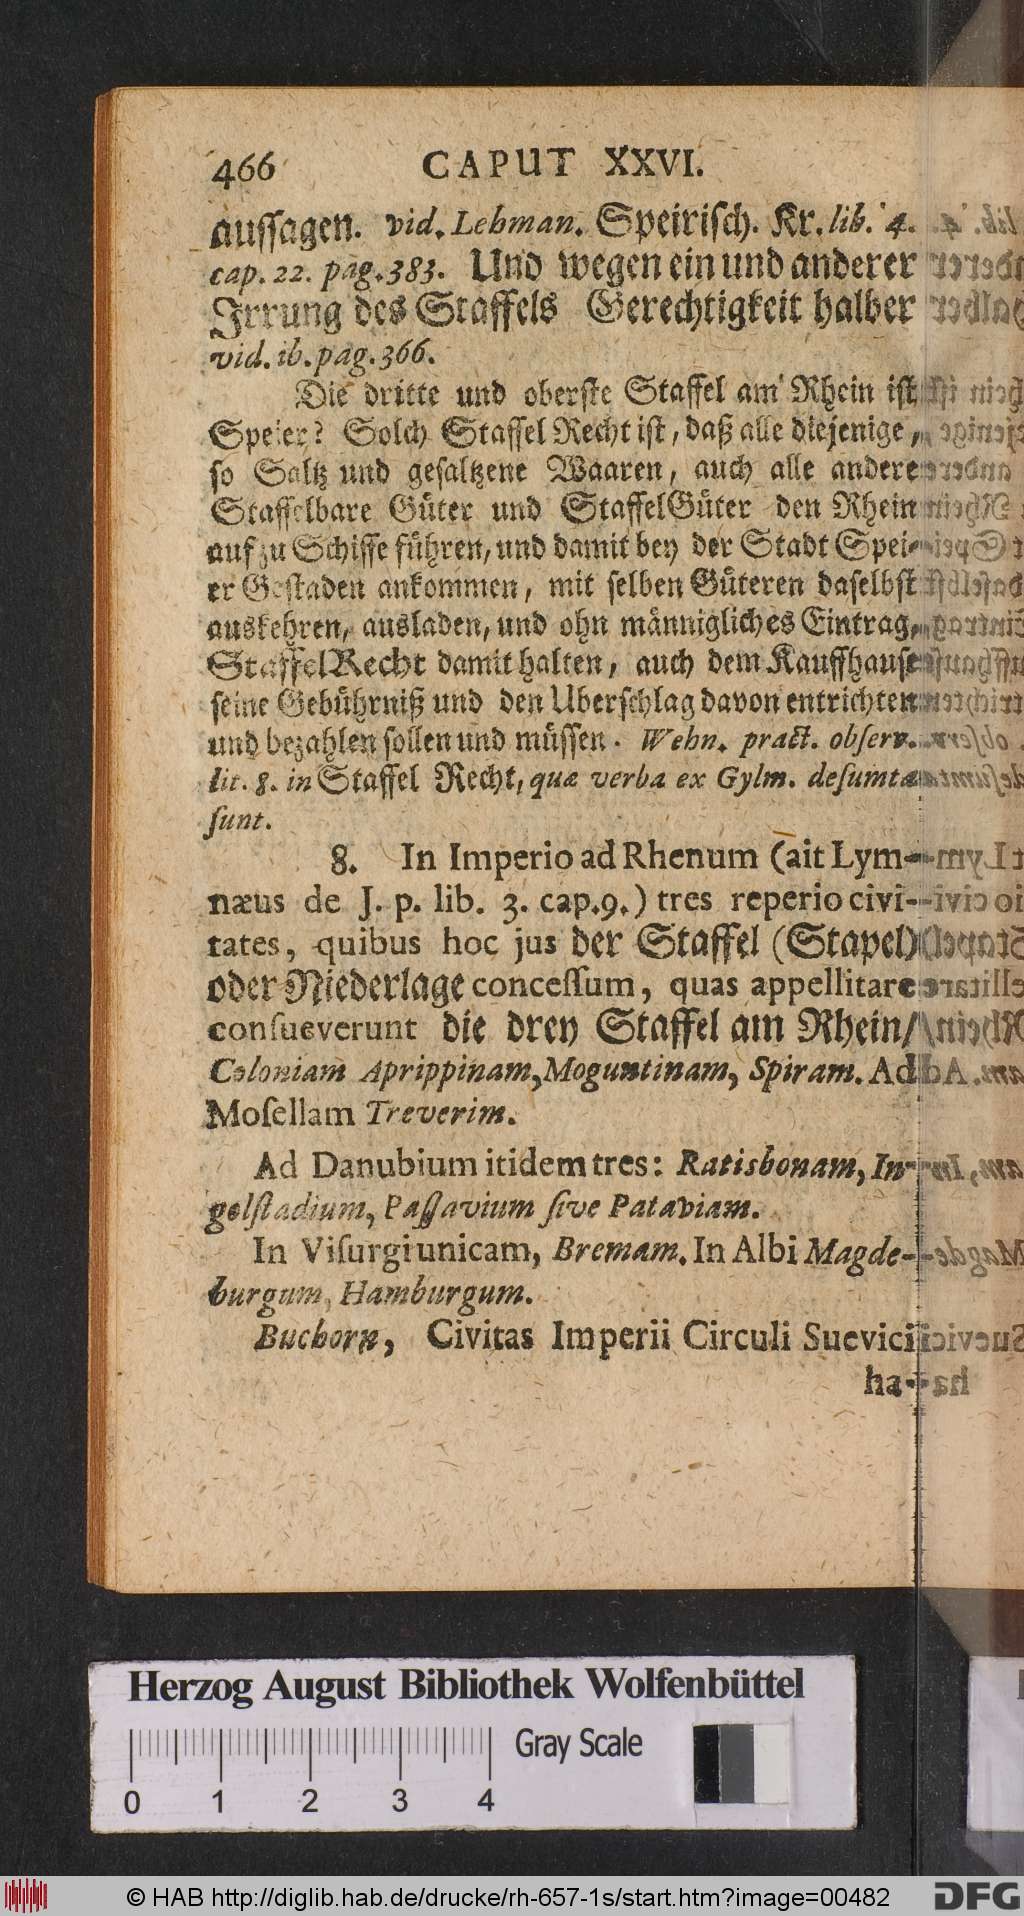 466 CAPUT XXVI.
ausſagen. vid. Lehman. Speiriſch. Kr. lib. 4.
cap. 22. pag. 383. Und wegen ein und anderer
Irrung des Staffels Gerechtigkeit halber
vid. ib. pag. 366.
Die dritte und oberſte Staffel am Rhein iſt
Speier? Solch Staffel Recht iſt, daß alle diejenige,
ſo Saltz und geſaltzene Waaren, auch alle andere
Staffelbare Güter und StaffelGüter den Rhein
auf zu Schiffe führen, und damit bey der Stadt Spei-
er Geſtaden ankommen, mit ſelben Güteren daſelbſt
auskehren, ausladen, und ohn männigliches Eintrag,
StaffelRecht damit halten, auch dem Kauffhauſe
ſeine Gebührniß und den Uberſchlag davon entrichten
und bezahlen ſollen und müſſen. Wehn. pract. obſerv.
lit. 8. in Staffel Recht, quæ verba ex Gylm. deſumta
ſunt.
8. In Imperio ad Rhenum (ait Lym-
næus de J. p. lib. 3. cap. 9.) tres reperio civi-
tates, quibus hoc jus der Staffel (Stapel)
oder Niederlage conceſſum, quas appellitare
conſueverunt die drey Staffel am Rhein/
Coloniam Aprippinam, Moguntinam, Spiram. Ad
Moſellam Treverim.
Ad Danubium itidem tres: Ratisbonam, In-
golſtadium, Paſſavium ſive Pataviam.
In Viſurgi unicam, Bremam. In Albi Magde-
burgum, Hamburgum.
Buchorn, Civitas Imperii Circuli Suevici
ha-
Herzog August Bibliothek Wolfenbüttel
Gray Scale
0 1 2 3 4
© HAB http://diglib.hab.de/drucke/rh-657-1s/start.htm?image=00482
DFG